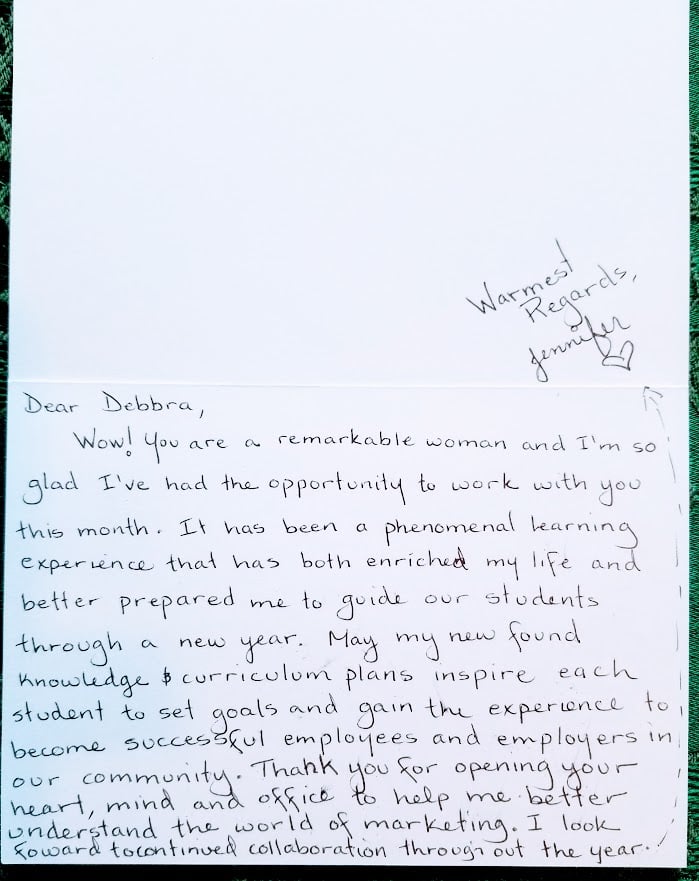 Dear Debbra,
Wow! You are a remarkable woman and I'm so
glad I've had the opportunity to work with you
this month. It has been a phenomenal learning
experience that has both enriched my life and
better prepared me to guide our students
through a new year. May my new found
knowledge & curriculum plans inspire each
student to set goals and gain the experience to
become successful employees and employers in
our community. Thank you for opening your
heart, mind and office to help me better
understand the world of marketing. I look
foward to continued collaboration through out the year.
Warmest
Regards,
Jennifer